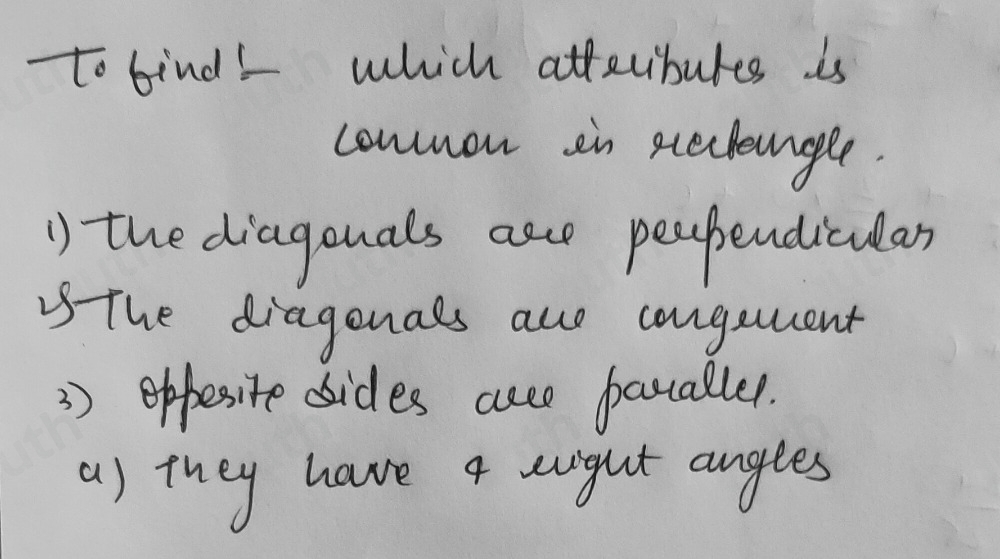 To find :- which attributes is
common in rectangle.
1) the diagonals are perpendicular
2) The diagonals are congruent
3) opposite sides are parallel.
4) They have 4 right angles